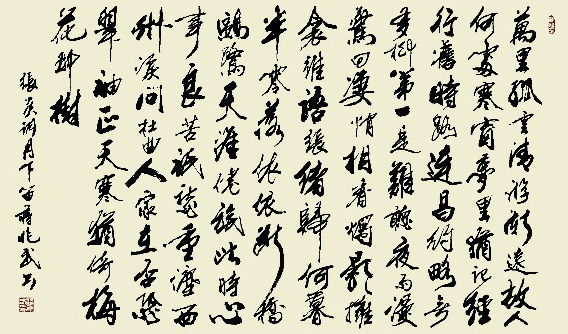 萬里孤雲清游漸遠故人
何處寒窗夢里猶記經
行舊時路連昌約略無
多柳第一是難聽夜雨謾
驚回淒悄相看燭影擁
衾誰語張緒歸何暮
半零落依依斷橋
鷗鷺天涯倦旅此時心
事良苦祇愁重灑西
州淚問杜曲人家在否恐
翠袖正天寒猶倚梅
花那樹
張炎詞月下笛蔣兆武書